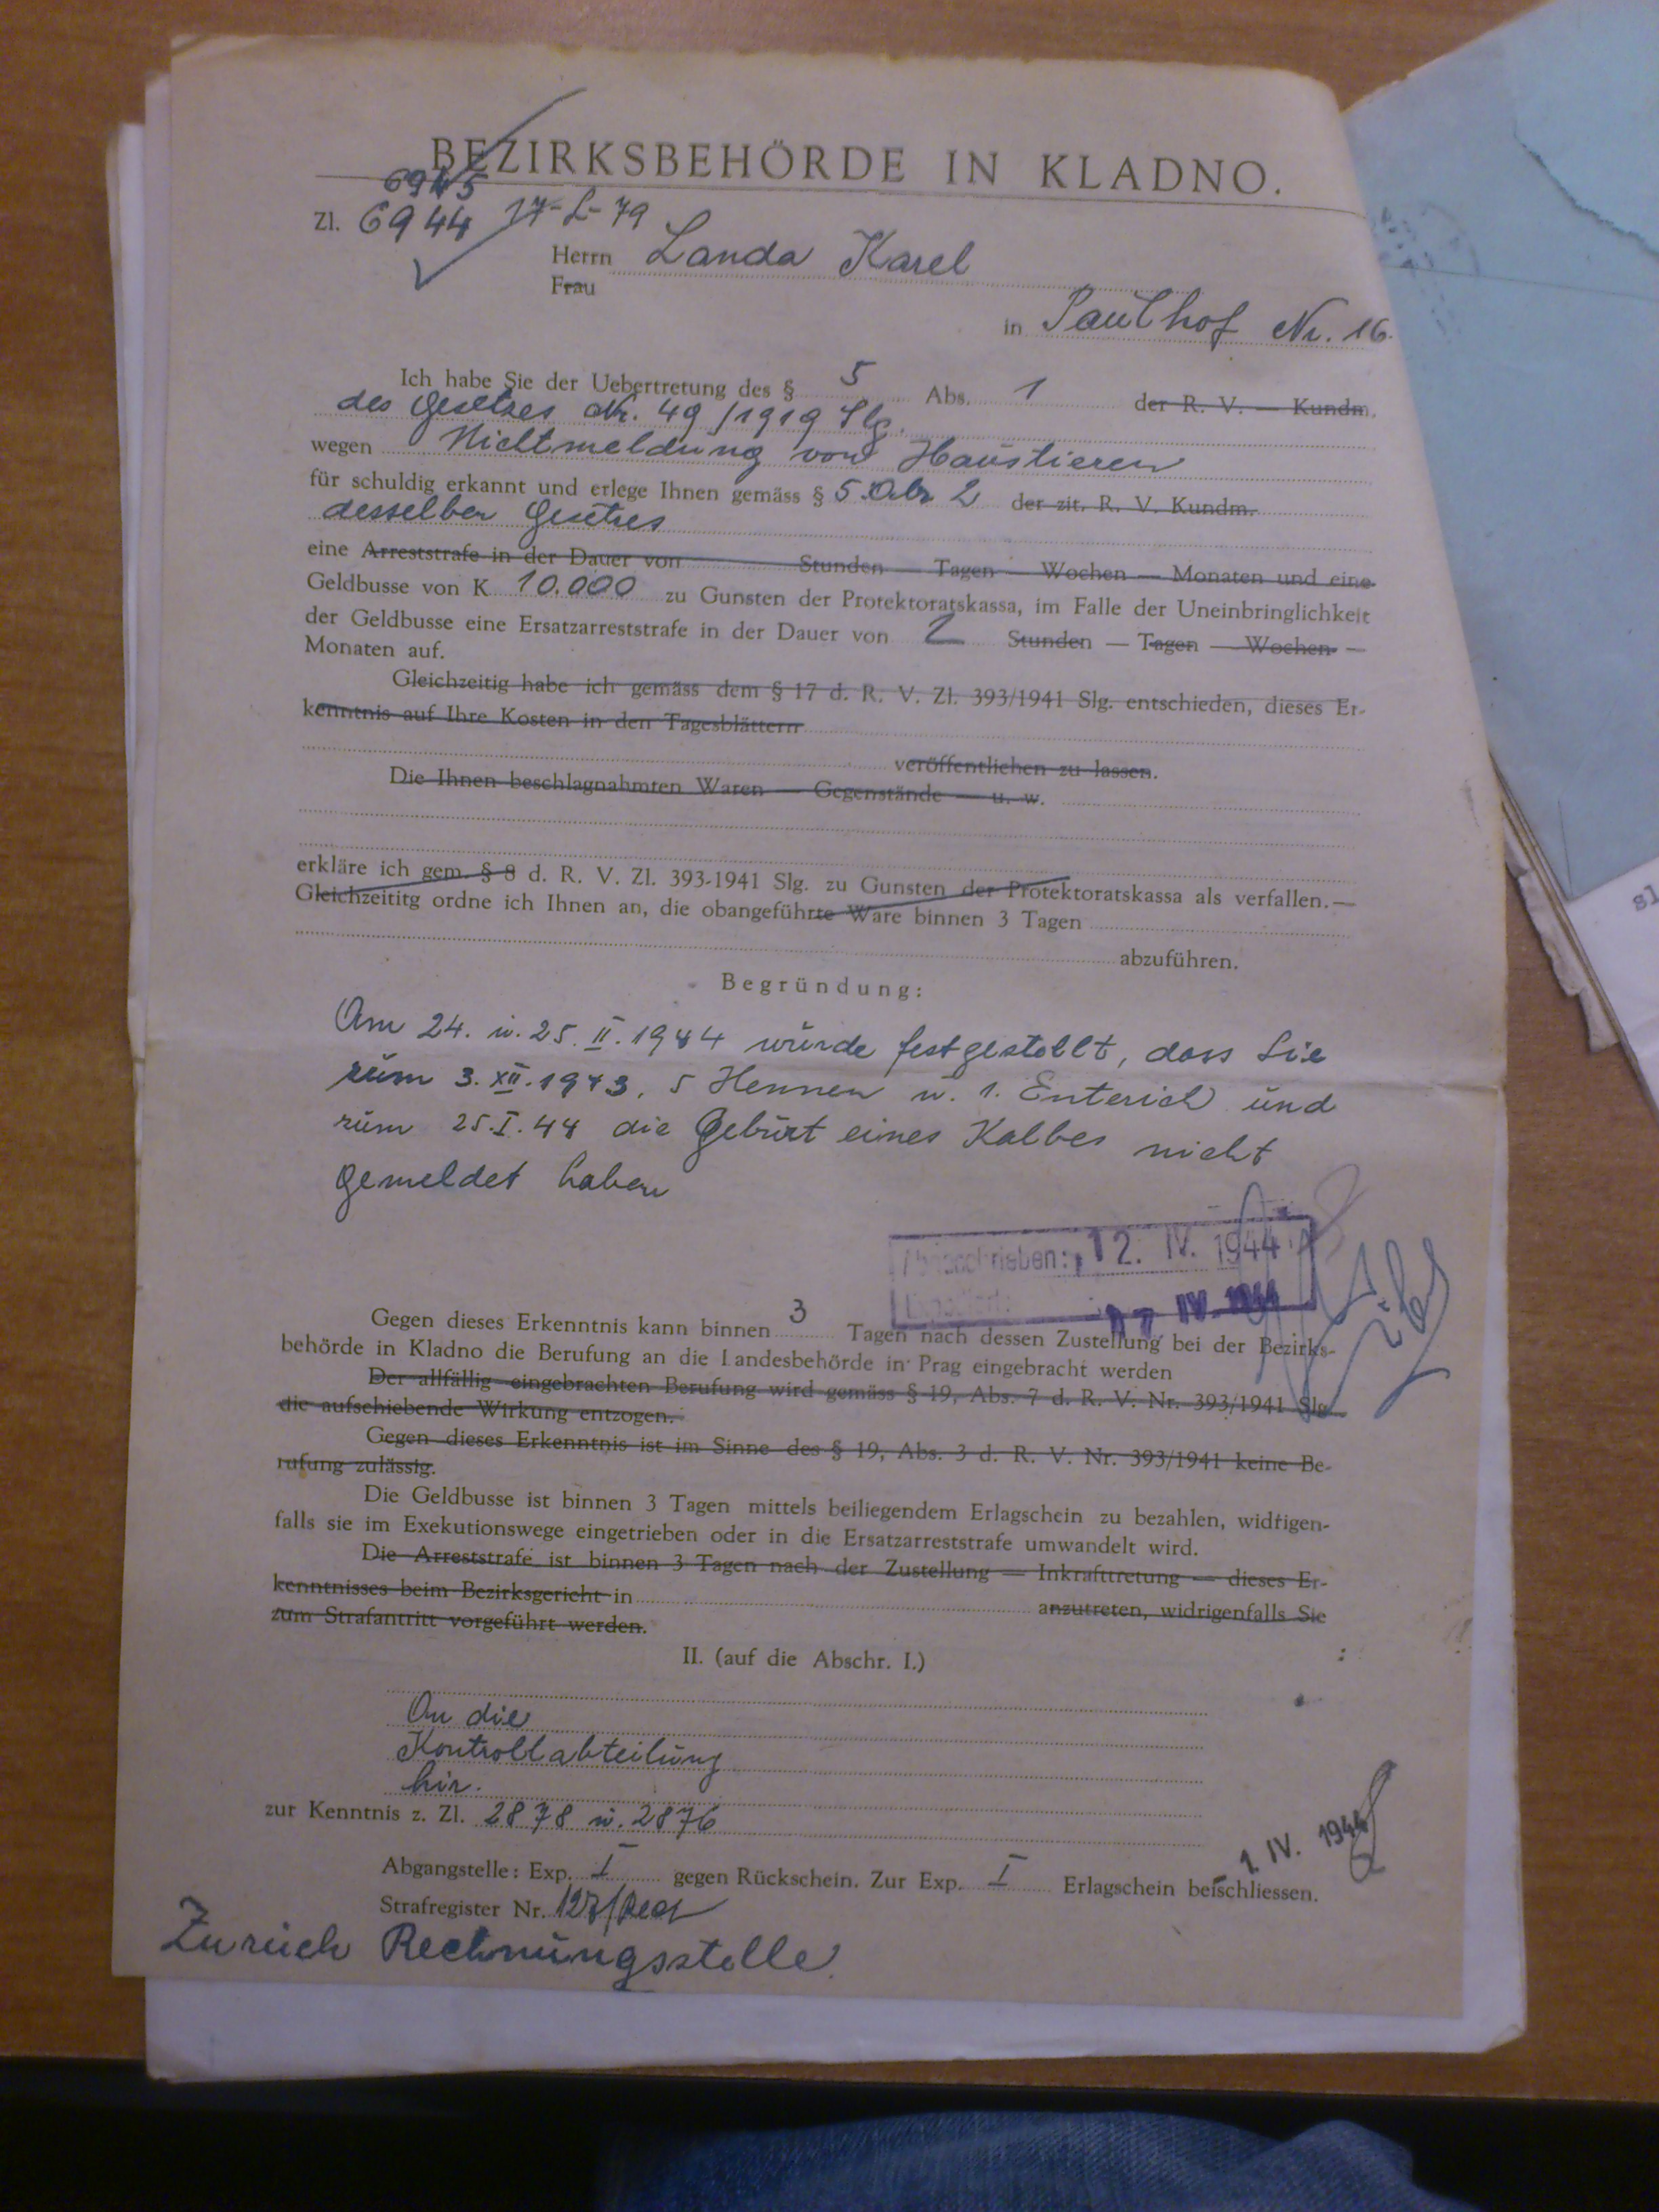 BEZIRKSBEHÖRDE IN KLADNO.
6945
Zl. 6944 17-L-79
Herrn Landa Karel
Frau
in Paulhof Nr. 16.
Ich habe Sie der Uebertretung des § 5 Abs. 1 der R. V. — Kundm.
des Gesetzes Nr. 49/1919 Slg.
wegen Nichtmeldung von Haustieren
für schuldig erkannt und erlege Ihnen gemäss § 5 Abs 2 der zit. R. V. Kundm.
desselben Gesetzes
eine Arreststrafe in der Dauer von Stunden — Tagen — Wochen — Monaten und eine
Geldbusse von K 10.000 zu Gunsten der Protektoratskassa, im Falle der Uneinbringlichkeit
der Geldbusse eine Ersatzarreststrafe in der Dauer von 2 Stunden — Tagen — Wochen —
Monaten auf.
Gleichzeitig habe ich gemäss dem § 17 d. R. V. Zl. 393/1941 Slg. entschieden, dieses Er-
kenntnis auf Ihre Kosten in den Tagesblättern
veröffentlichen zu lassen.
Die Ihnen beschlagnahmten Waren — Gegenstände — u. w.
erkläre ich gem. § 8 d. R. V. Zl. 393-1941 Slg. zu Gunsten der Protektoratskassa als verfallen.—
Gleichzeititg ordne ich Ihnen an, die obangeführte Ware binnen 3 Tagen
abzuführen.
Begründung:
Am 24. u. 25. II. 1944 wurde festgestellt, dass Sie
zum 3. XII. 1943, 5 Hennen u. 1. Enterich und
zum 25. I. 44 die Geburt eines Kalbes nicht
gemeldet haben
Abgeschrieben: 12. IV. 1944
IV. 1944
Gegen dieses Erkenntnis kann binnen 3 Tagen nach dessen Zustellung bei der Bezirks-
behörde in Kladno die Berufung an die Landesbehörde in Prag eingebracht werden
Der allfällig eingebrachten Berufung wird gemäss § 19, Abs. 7 d. R. V. Nr. 393/1941 Slg.
die aufschiebende Wirkung entzogen.
Gegen dieses Erkenntnis ist im Sinne des § 19, Abs. 3 d. R. V. Nr. 393/1941 keine Be-
rufung zulässig.
Die Geldbusse ist binnen 3 Tagen mittels beiliegendem Erlagschein zu bezahlen, widrigen-
falls sie im Exekutionswege eingetrieben oder in die Ersatzarreststrafe umwandelt wird.
Die Arreststrafe ist binnen 3 Tagen nach der Zustellung — Inkrafttretung — dieses Er-
kenntnisses beim Bezirksgericht in anzutreten, widrigenfalls Sie
zum Strafantritt vorgeführt werden.
II. (auf die Abschr. I.)
An die
Kontrollabteilung
hir.
zur Kenntnis z. Zl. 2878 u. 2876
1. IV. 1944
Abgangstelle: Exp. I gegen Rückschein. Zur Exp. I Erlagschein beischliessen.
Strafregister Nr.
Zurück Rechnungsstelle